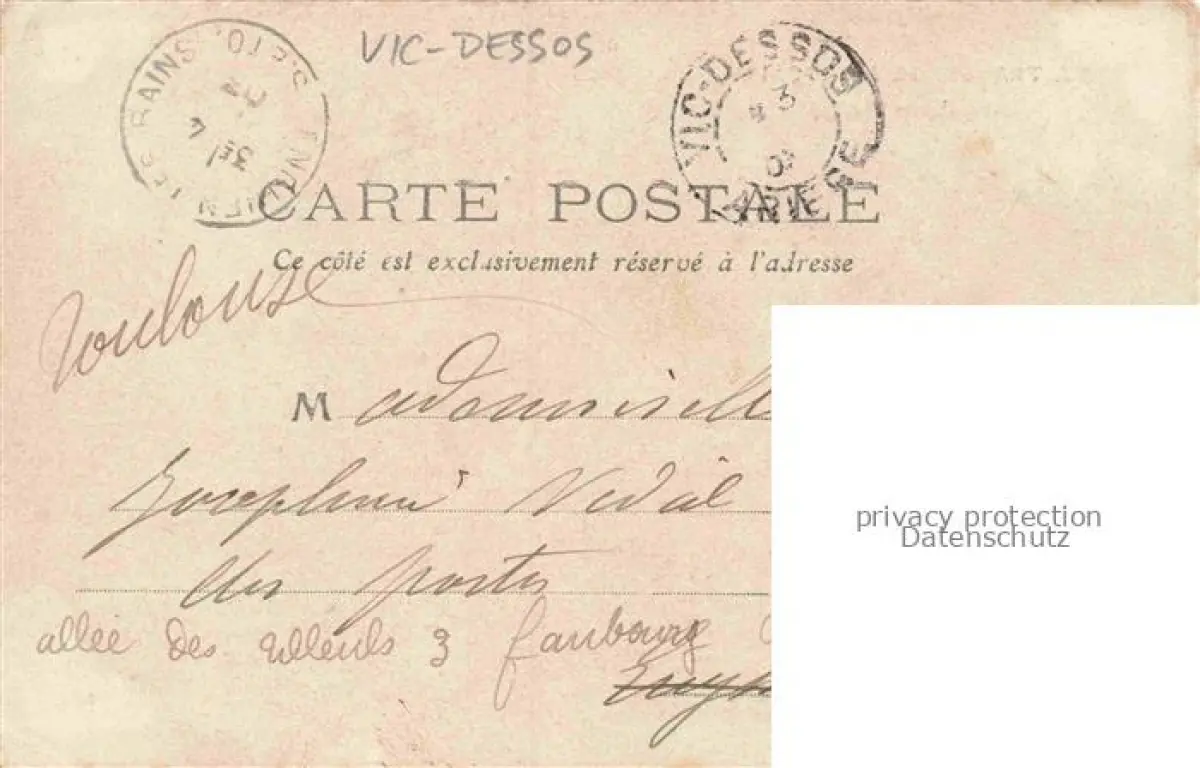 VIC-DESSOS
VIC-DESSOS
3
ARIEGE
CARTE POSTALE
Ce côté est exclusivement réservé à l'adresse
Toulouse
Mademoisell
Josephine Vidal
des postes
allée des tilleuls 3 faubourg
privacy protection
Datenschutz